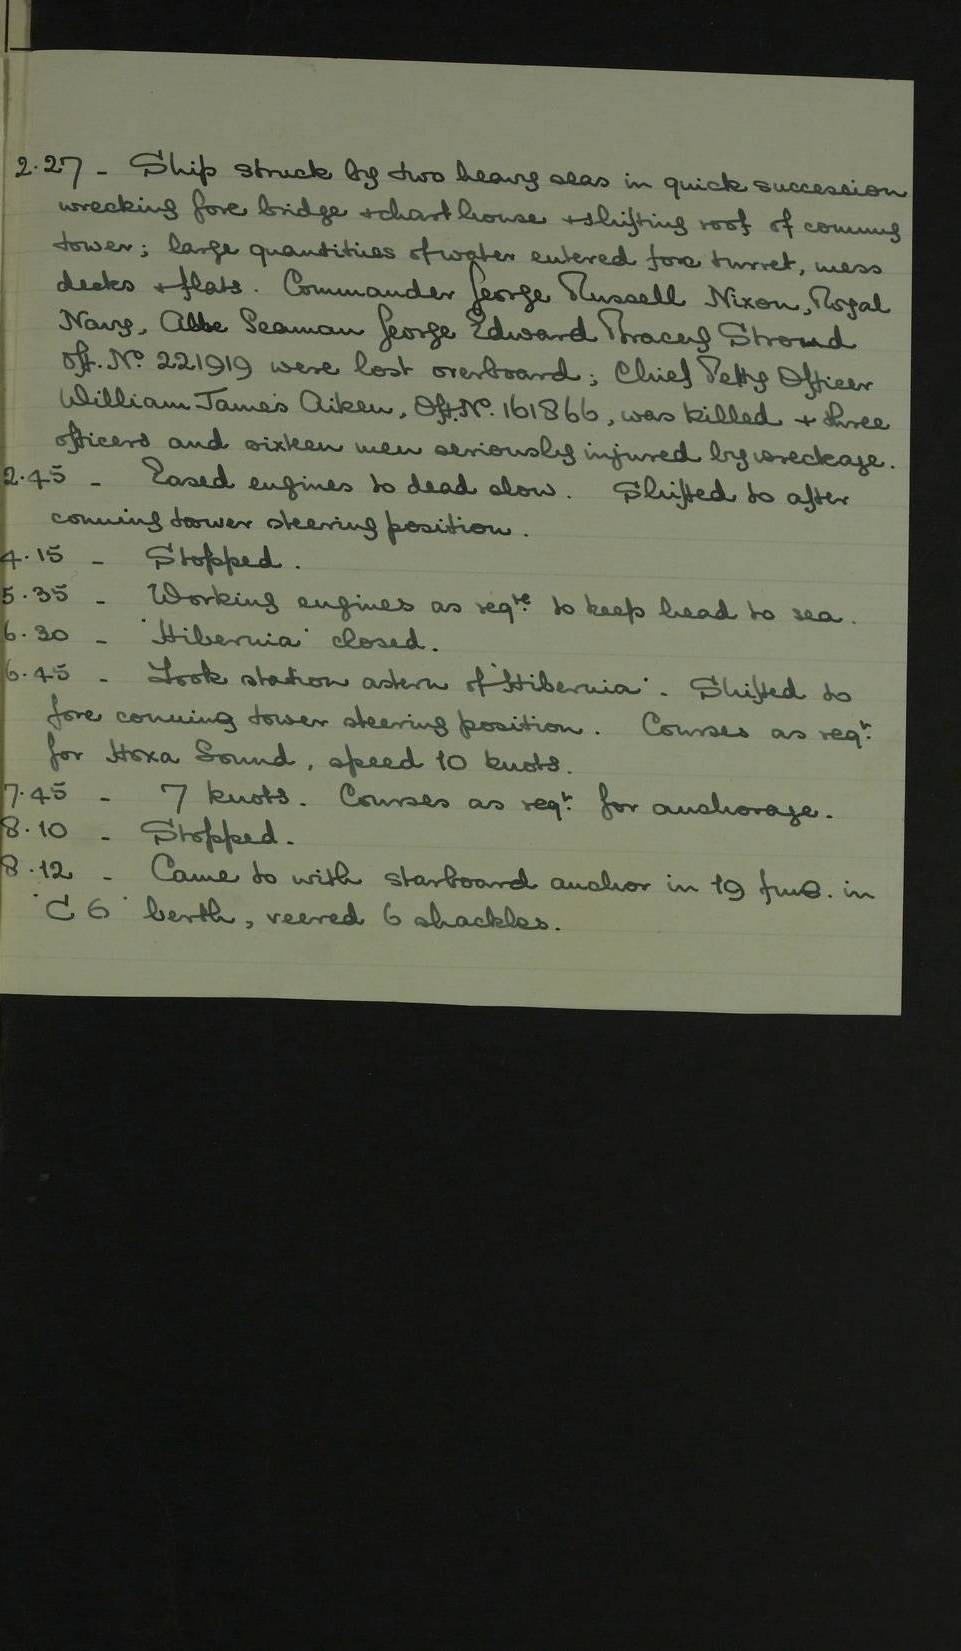 2.27 - Ship struck by two heavy seas in quick succession
wrecking fore bridge + chart house + shifting roof of conning
tower; large quantities of water entered fore turret, mess
decks + flats. Commander George Russell Nixon, Royal
Navy, Able Seaman George Edward Bracey Stroud
Off. No. 221919 were lost overboard; Chief Petty Officer
William James Aiken, Off. No. 161866, was killed + three
officers and sixteen men seriously injured by wreckage.
2.45 - Eased engines to dead slow. Shifted to after
conning tower steering position.
4.15 - Stopped.
5.35 - Working engines as reqre. to keep head to sea.
6.30 - 'Hibernia' closed.
6.45 - Took station astern of 'Hibernia'. Shifted to
fore conning tower steering position. Courses as reqr.
for Hoxa Sound, speed 10 knots.
7.45 - 7 knots. Courses as reqr. for anchorage.
8.10 - Stopped.
8.12 - Came to with starboard anchor in 19 fms. in
'C 6' berth, veered 6 shackles.